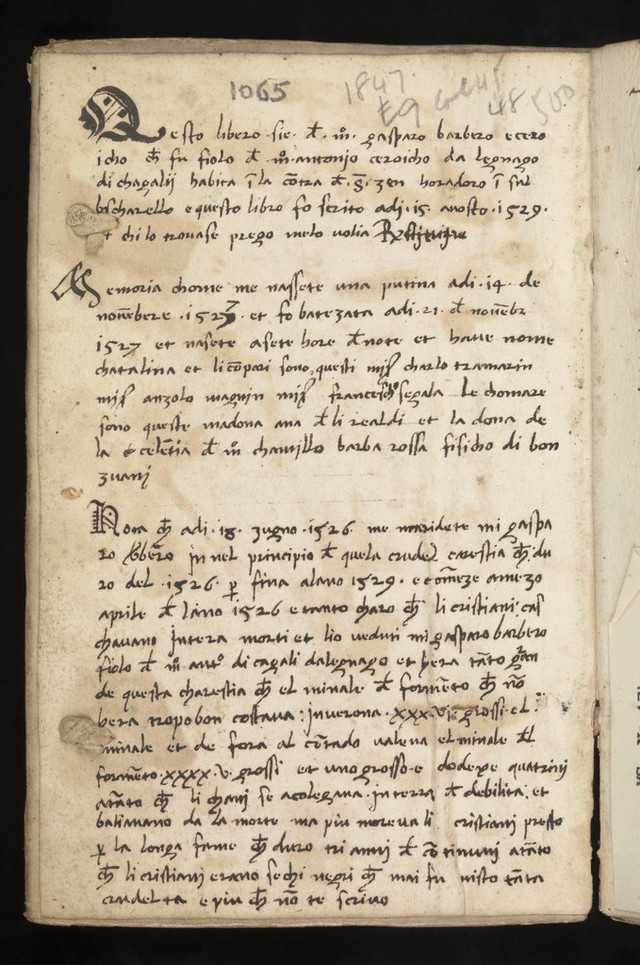 1065 1847
Questo libero sie đ m̊ gasparo barbero e cero
icho ch̄ fu fiolo đ m̊ antonio ceroicho da legnago
di chagalij habita ī la cōtra đ S. zen horadoro ī sul
bscharello e questo libro fo scrito adj .15. avosto .1529.
+ chi lo trovase prego melo volia Restituire
Memoria chome me nassete una putina adi .14. de
novēbere .1527. et fo batezata adi .21. đ novēbr
1527 et nasete a sete hore đ note et have nome
chatalina et li cōpari sono questi charlo tramarin
anzolo magnin francescho segala Le chomare
sono queste madona ana đ li realdi et la dona de
la đ m̊ chamillo barba rossa fisicho di bon
zuanj
Nota ch̄ adi .18. zugno .1526. me maridete mi gaspa
ro bbēro in nel principio đ quela crudel carestia ch̄ du
ro del .1526. p̱ fina alano 1529. e comēze a mezo
aprile đ lano 1526 e tanto charo ch̄ li cristiani cas
chavano in tera morti et lio veduti mi gasparo barbero
fiolo đ m̊ antō di cagali da legnago et hera tāto gran
de questa charestia ch̄ el minale đ formēto ch̄ nō
hera tropo bon costava in verona .xxx.vi. grossi el
minale et de fora al cōtado valeva el minale đl
formēto .xxxx.v. grossi et uno grosso e dodexe quatrinj
atāto ch̄ li chanj se acolegava in terra đ debilita et
batiavano da la morte ma piu moreva li cristiani presto
p̱ la longa fame ch̄ duro tri annj đ cōtinuni atāto
ch̄ li cristiani erano sechi negri ch̄ mai fu visto tāta
crudelta e piu ch̄ nō te scrivo